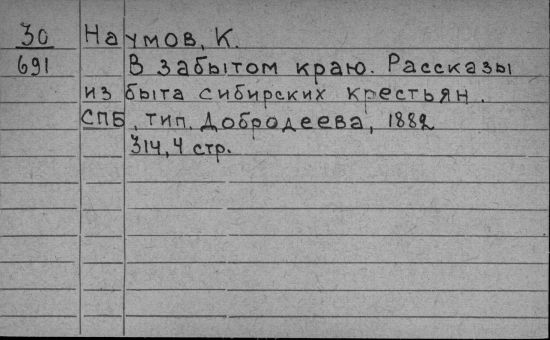 30 Наумов, К.
691 В забытом краю. Рассказы
из быта сибирских крестьян.
СПБ, тип. Добродеева, 1882
314, 4 стр.